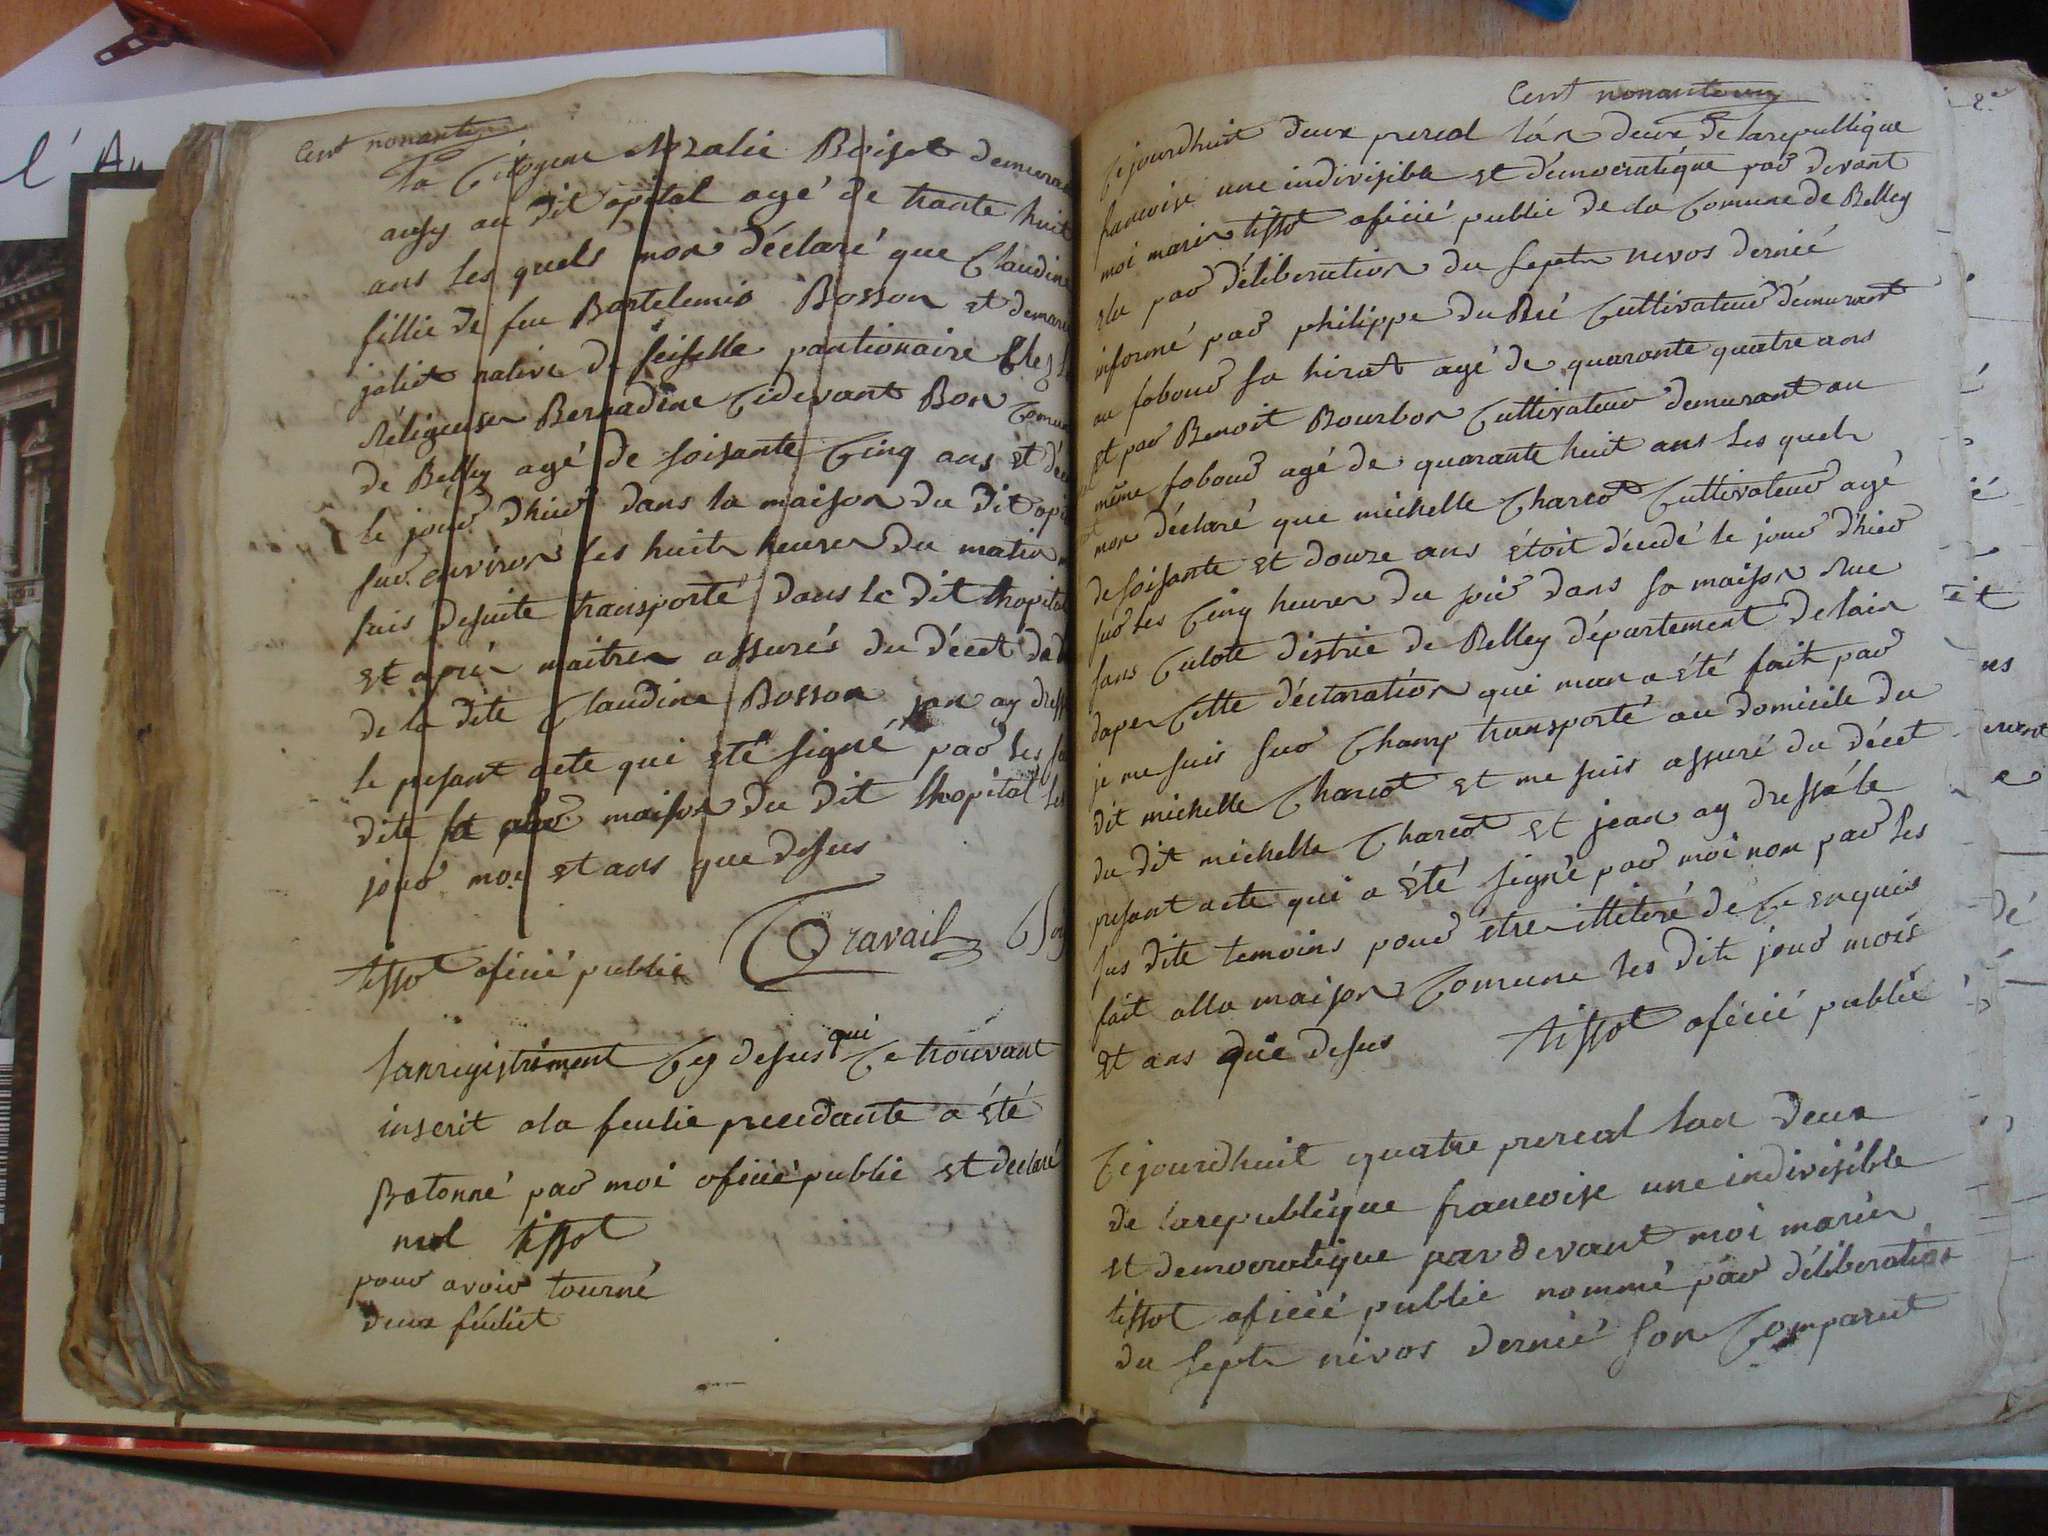 l'Au
Cent nonante
La Citoyene Rozalie Boisot demurant
ausy au dit opital agé de trante huit
ans les quels mon déclaré que Claudine
fillie de feu Bartelemis Bosson et demarie
joliet native de seiselle pantionaire Chez les
Réligeuser Bernadine Cidevant Bon Comune
de Belley agé de soisante Cinq ans et
le jour dhier dans la maison du dit
sur environ les huit heurer du matin
suis desuite transporté dans le dit lhopital
et aprer maitrer assurés du décet
de la dite Claudine Bosson jan ay
le presant acte qui eté signé par les
dite maison du dit lhopital les
jour moi et ans que desus
tissot oficié public Travail
lanregistrément Cey desus qui Ce trouvant
inscrit ala feulie precedante a été
Batonné par moi oficié public et déclaré
nul tissot
pour avoir tourné
deux feuliet
Cent nonante un
Cejourdhuit deux prereal lan deux de larepublique
francoise une indivisible et démocratique par devant
moi marin tissot oficié public de la Comune de Belley
elu par déliberation du septr nivos dernié
informé par philippe du Pré Cultivateur démurant
au fobour sa hirat agé de quarante quatre ans
et par Benoit Bourbon Cultivateur demurant au
même fobour agé de quarante huit ans les quels
mon déclaré que michelle Charcot Cultivateur agé
de soisante et douze ans étoit décedé le jour d'hier
sur les Cinq heurer du soir dans sa maison rue
sans Culote distric de Belley département delain
daper Cette déclaration qui man a été fait par
je me suis sur Champ transporté au domicile du
dit michelle Charcot et me suis assuré du décet
du dit michelle Charcot et jean ay dressé le
presant acte qui a été signé par moi non par les
sus dite temoins pour être illiteré de Ce enquis
fait alla maison Comune les dit jour mois
et ans que desus tissot oficié public
Cejourdhuit quatre prereal lan deux
de larepubléque francoise une indivisible
et democratique pardevant moi marin
tissot oficié public nommé par déliberation
du septr nivos dernié son Comparut